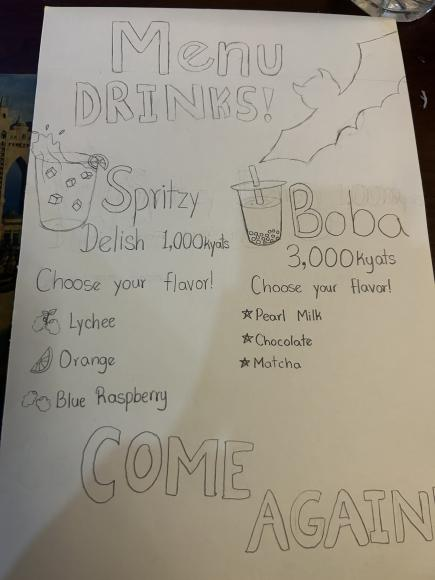 Menu
DRINKS!
Spritzy
Delish 1,000kyats
Choose your flavor!
Lychee
Orange
Blue Raspberry
Boba
3,000kyats
Choose your flavor!
Pearl Milk
Chocolate
Matcha
COME
AGAIN!